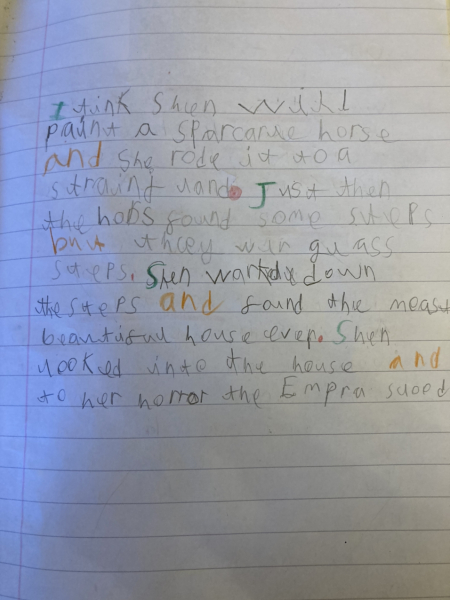 I tink Shen will
paint a sparcarue horse
and She rode it to a
straind land. Just then
the hobs found some steps
but thcey wer guass
steps. Shen warkde down
the steps and found the meast
beautiful house ever. Shen
looked into the house and
to her horror the Empra stood